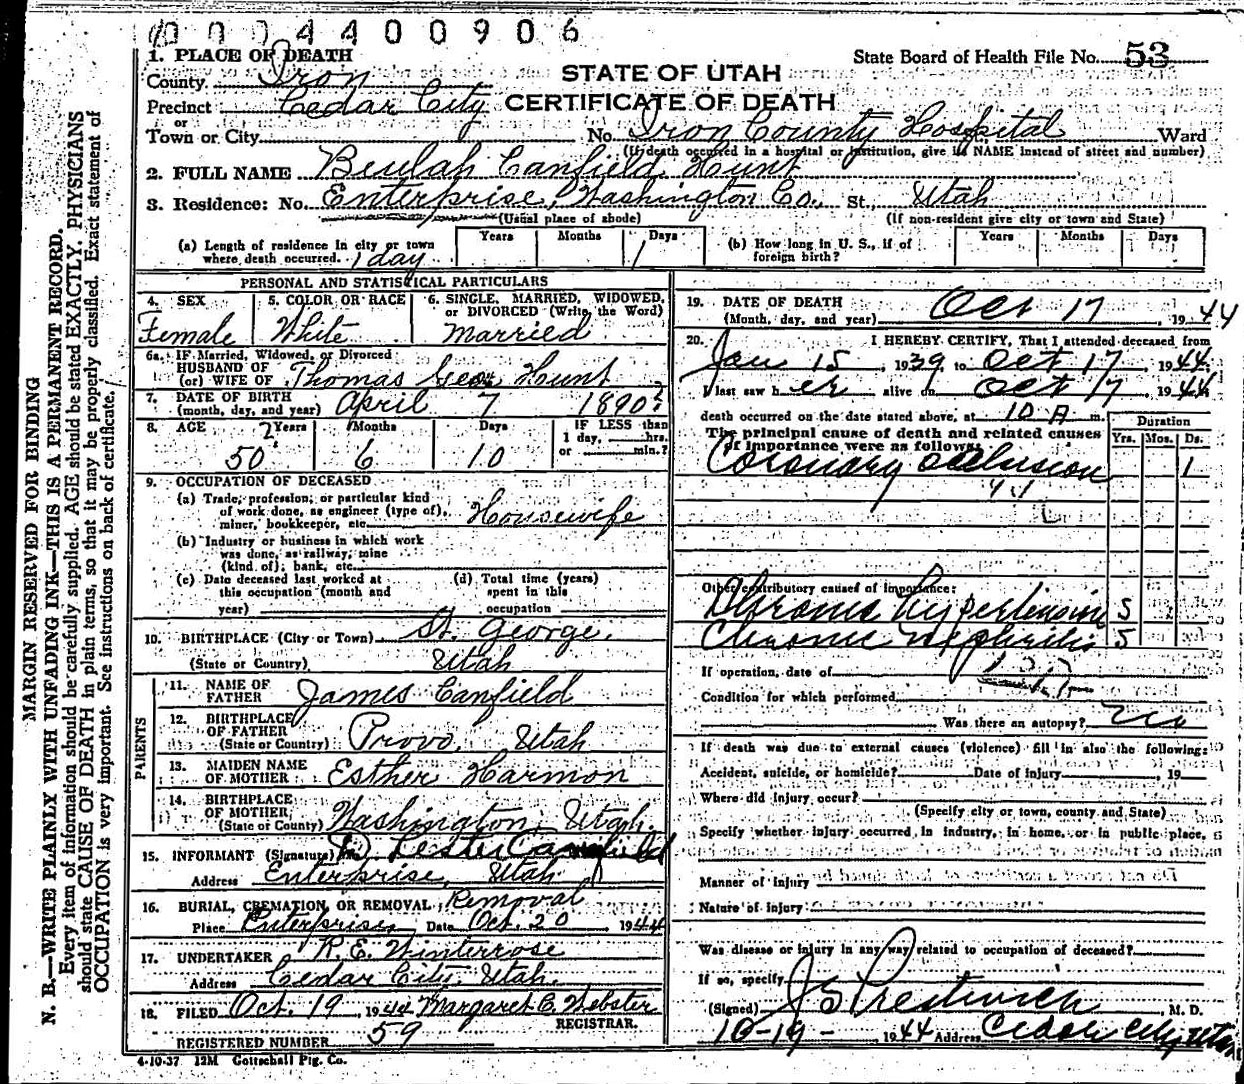 0004400906
1. PLACE OF DEATH
State Board of Health File No. 53
County Iron
STATE OF UTAH
Precinct Cedar City
CERTIFICATE OF DEATH
or
Town or City
No. Iron County Hospital Ward
(If death occurred in a hospital or institution, give its NAME instead of street and number)
2. FULL NAME Beulah Canfield Hunt
3. Residence: No. Enterprise, Washington Co., St. Utah
(Usual place of abode) (If non-resident give city or town and State)
(a) Length of residence in city or town where death occurred. 1 day
Years Months Days 1
(b) How long in U. S., if of foreign birth?
Years Months Days
PERSONAL AND STATISTICAL PARTICULARS
4. SEX Female
5. COLOR OR RACE White
6. SINGLE, MARRIED, WIDOWED, or DIVORCED (Write the Word) Married
6a. IF Married, Widowed, or Divorced
HUSBAND OF
(or) WIFE OF Thomas Geo Hunt
7. DATE OF BIRTH
(month, day, and year) April 7 1890?
8. AGE ? Years Months Days
50 6 10
IF LESS than
1 day, hrs.
or min.?
9. OCCUPATION OF DECEASED
(a) Trade, profession, or particular kind
of work done, as engineer (type of), Housewife
miner, bookkeeper, etc.
(b) Industry or business in which work
was done, as railway, mine
(kind of), bank, etc.
(c) Date deceased last worked at
this occupation (month and
year)
(d) Total time (years)
spent in this
occupation
10. BIRTHPLACE (City or Town) St. George,
(State or Country) Utah
PARENTS
11. NAME OF
FATHER James Canfield
12. BIRTHPLACE
OF FATHER
(State or Country) Provo, Utah
13. MAIDEN NAME
OF MOTHER Esther Harmon
14. BIRTHPLACE
OF MOTHER
(State or Country) Washington, Utah.
15. INFORMANT (Signature) D Lester Canfield
Address Enterprise, Utah
16. BURIAL, CREMATION, OR REMOVAL Removal
Place Enterprise, Date Oct. 20, 1944
17. UNDERTAKER R. E. Winterrose
Address Cedar City, Utah.
18. FILED Oct. 19, 1944 Margaret C. Webster
REGISTRAR.
REGISTERED NUMBER 59
4-10-37 12M Gottschall Ptg. Co.
19. DATE OF DEATH
(Month, day, and year) Oct 17, 1944
20. I HEREBY CERTIFY, That I attended deceased from
Jan 15, 1939, to Oct 17, 1944
I last saw her alive on Oct 17, 1944
death occurred on the date stated above, at 10 A m.
Duration
Yrs. Mos. Ds.
The principal cause of death and related causes
of importance were as follows:
Coronary occlusion 1
Other contributory causes of importance:
Chronic hypertension 5
Chronic nephritis 5
If operation, date of
Condition for which performed
Was there an autopsy? no
If death was due to external causes (violence) fill in also the following:
Accident, suicide, or homicide? Date of injury , 19
Where did injury occur?
(Specify city or town, county and State)
Specify whether injury occurred in industry, in home, or in public place,
Manner of injury
Nature of injury
Was disease or injury in any way related to occupation of deceased?
If so, specify
(Signed) J S Prestwich, M. D.
10-19- 1944 Address Cedar City, Utah
MARGIN RESERVED FOR BINDING
N. B.—WRITE PLAINLY WITH UNFADING INK—THIS IS A PERMANENT RECORD.
Every item of information should be carefully supplied. AGE should be stated EXACTLY. PHYSICIANS
should state CAUSE OF DEATH in plain terms, so that it may be properly classified. Exact statement of
OCCUPATION is very important. See instructions on back of certificate.